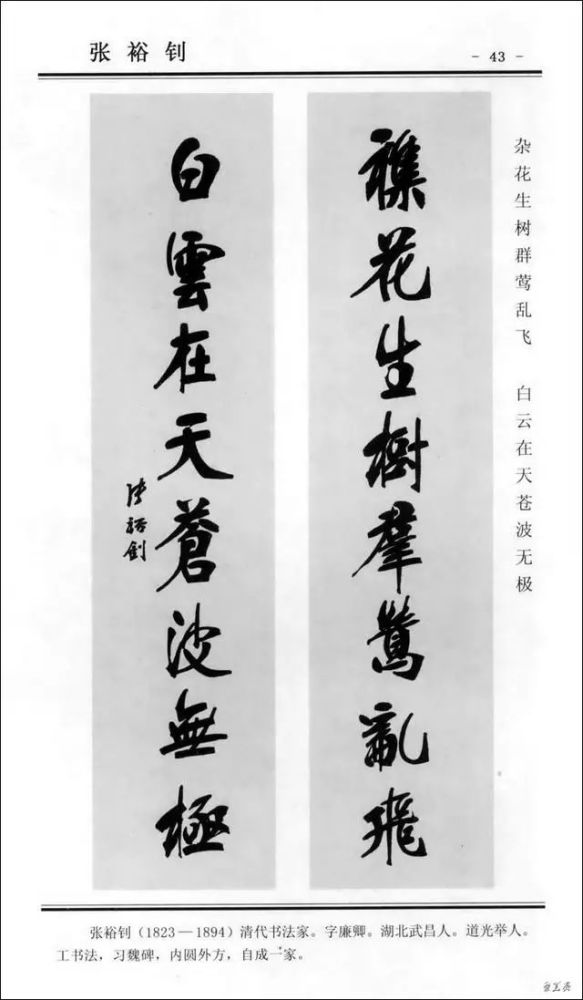 张裕钊
- 43 -
杂花生树群莺乱飞 白云在天苍波无极
襍花生樹羣鶯亂飛
白雲在天蒼波無極
张裕钊
张裕钊（1823—1894）清代书法家。字廉卿。湖北武昌人。道光举人。
工书法，习魏碑，内圆外方，自成一家。